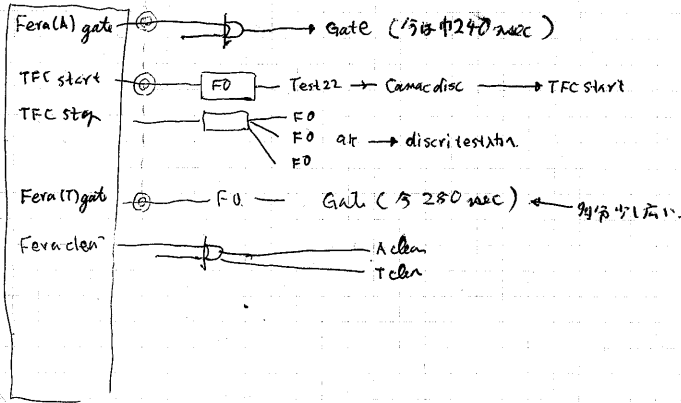 Fera(A) gate → Gate (今は巾240nsec)
TFC start F0 Test22 → Camac disc → TFC start
TFC stop F0
F0 → discri test
F0
Fera(T) gate F0 Gate (今 280 nsec) ← 多分少し広い.
Fera clear A clear
T clear